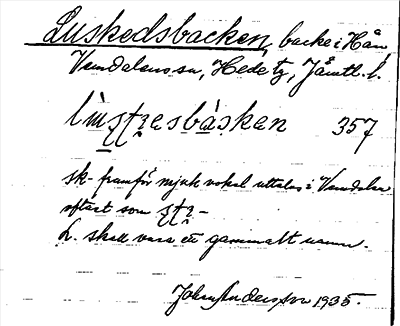 Luskedsbacken, backe i Hån
Vemdalens sn, Hede tg, Jämtl. l.
357
sk- framför mjuk vokal uttalas i Vemdalen
oftast som
L. skall vara ett gammalt namn.
John Andersson 1935.